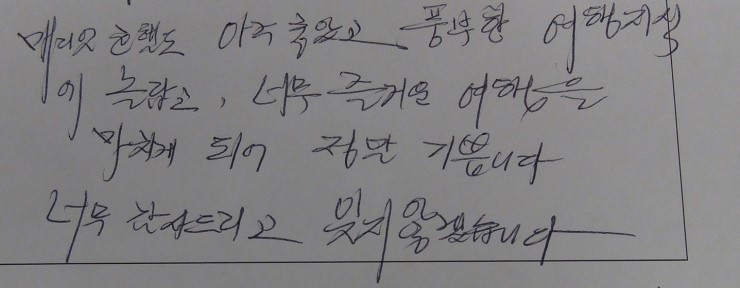 아주 좋았고 풍부한 여행지식
에 놀랍고, 너무 즐거운 여행을
마치게 되어 정말 기쁩니다
너무 감사드리고 잊지 않겠습니다